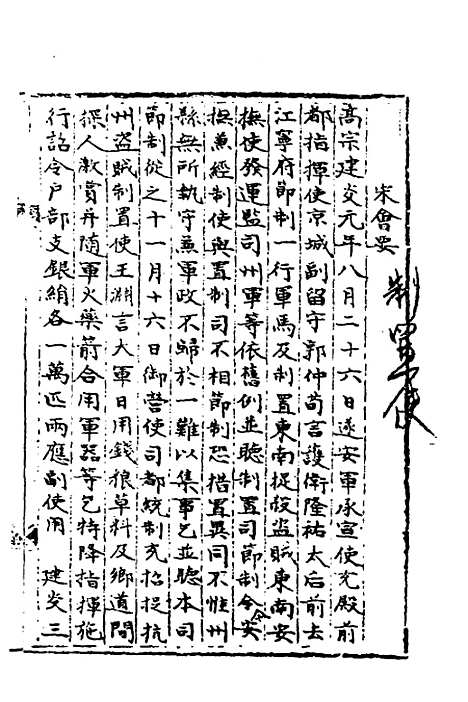 宋會要
制置使
高宗建炎元年八月二十六日遂安軍承宣使充殿前
都指揮使京城副留守郭仲荀言護衛隆祐太后前去
江寧府節制一行軍馬及制置東南捉殺盜賊東南安
撫使發運監司州軍等依舊例並聽制置司節制今安
撫兼經制使與置制司不相節制恐措置異同不惟州
縣無所執守兼軍政不歸於一難以集事乞並聽本司
節制從之十一月十六日御營使司都統制充招捉杭
州盜賊制置使王淵言大軍日用錢粮草料及鄉道間
探人激賞并隨軍火藥箭合用軍器等乞特降指揮施
行詔令户部支銀絹各一萬匹兩應副使用 建炎三